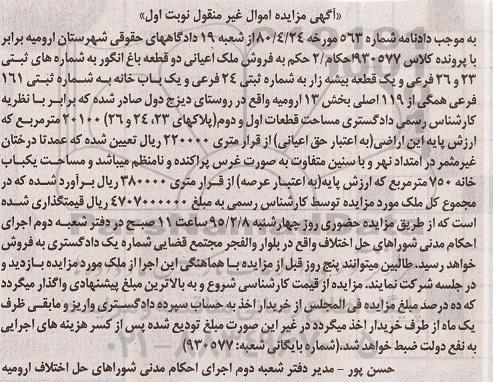 «آگهی مزایده اموال غیر منقول نوبت اول»
به موجب دادنامه شماره ۵۶۳ مورخه ۸۰/۴/۲۴از شعبه ۱۹ دادگاههای حقوقی شهرستان ارومیه برابر
با پرونده کلاس ۹۳۰۵۷۷احکام/۲ حکم به فروش ملک اعیانی دو قطعه باغ انگور به شماره های ثبتی
۲۳ و ۲۶ فرعی و یک قطعه بیشه زار به شماره ثبتی ۲۴ فرعی و یک باب خانه به شماره ثبتی ۱۶۱
فرعی همگی از ۱۱۹ اصلی بخش ۱۳ ارومیه واقع در روستای دیزج دول صادر شده که برابر با نظریه
کارشناس رسمی دادگستری مساحت قطعات اول و دوم(پلاکهای ۲۳، ۲۴ و ۲۶) ۲۰۱۰۰ مترمربع که
ارزش پایه این اراضی(به اعتبار حق اعیانی) از قرار متری ۲۲۰۰۰۰ ریال تعیین شده که عمدتا درختان
غیرمثمر در امتداد نهر و با سنین متفاوت به صورت غرس پراکنده و نامنظم میباشد و مساحت یکباب
خانه ۷۵۰ مترمربع که ارزش پایه(به اعتبـار عرصه) از قـرار متری ۳۸۰۰۰۰ ریال بـرآورد شـده که در
مجموع کل ملک مورد مزایده توسط کارشناس رسمی به مبلغ ۴۷۰۷۰۰۰۰۰۰ ریال قیمتگذاری شده
است که از طریق مزایده حضوری روز چهارشنبه ۹۵/۲/۸ ساعت ۱۱ صبـح در دفتر شعبـه دوم اجرای
احکام مدنی شوراهای حل اختلاف واقع در بلوار والفجر مجتمع قضایی شماره یک دادگستری به فروش
خواهد رسید. طالبین میتوانند پنج روز قبل از مزایده با هماهنگی این اجرا از ملک مورد مزایده بازدید و
در جلسه شرکت نمایند. مزایده از قیمت کارشناسی شروع و به بالاترین مبلغ پیشنهادی واگذار میگردد
که ده درصد مبلغ مزایده فی المجلس از خریدار اخذ به حساب سپرده دادگستری واریز و مابقی ظرف
یک ماه از طرف خریدار اخذ میگردد در غیر این صورت مبلغ تودیع شده پس از کسر هزینه های اجرایی
به نفع دولت ضبط خواهد شد.(شماره بایگانی شعبه: ۹۳۰۵۷۷)
حسن پور - مدیر دفتر شعبه دوم اجرای احکام مدنی شوراهای حل اختلاف ارومیه